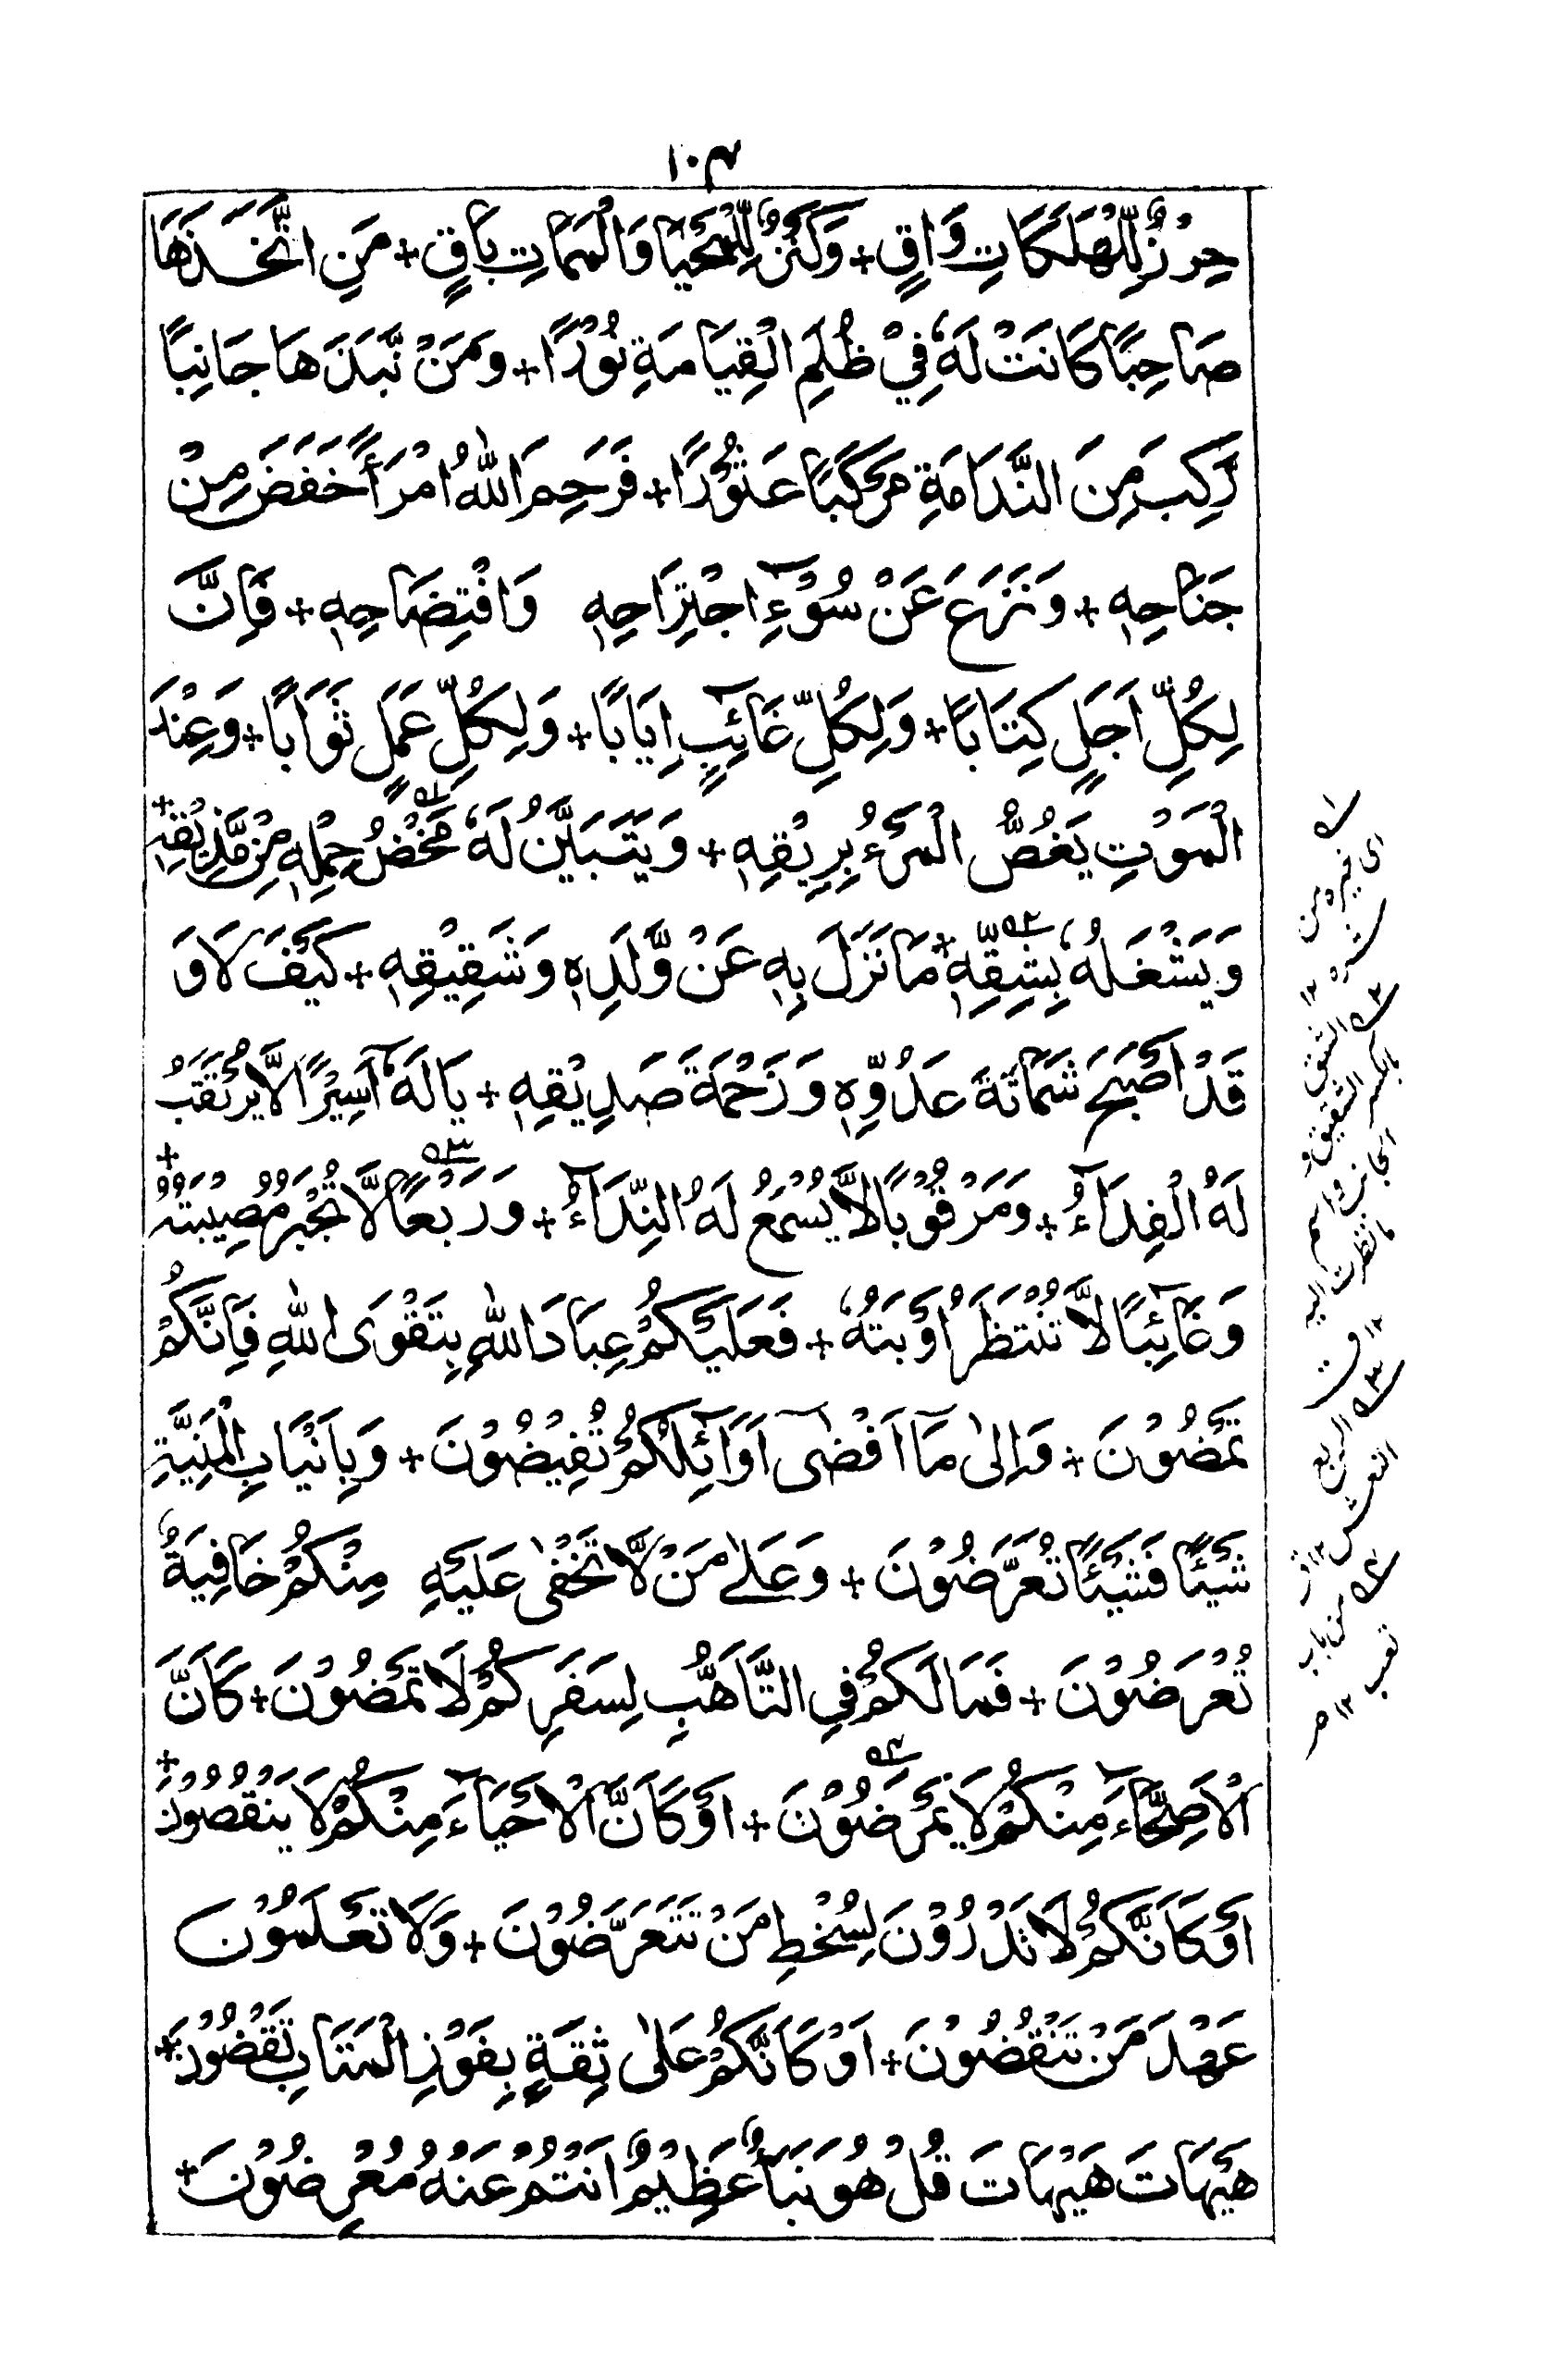 ۱۰۴
حِرْزٌ لِّلْهَلَكَاتِ وَاقٍ + وَكَنْزٌ لِّلْمَحْيَا وَالْمَمَاتِ بَاقٍ + مَنِ اتَّخَذَهَا
صَاحِبًا كَانَتْ لَهٗ فِيْ ظُلَمِ الْقِيَامَةِ نُوْرًا + وَمَنْ نَّبَذَهَا جَانِبًا
رَكِبَ مِنَ النَّدَامَةِ مَرْكَبًا عَثُوْرًا + فَرَحِمَ اللّٰهُ امْرَأً خَفَضَ مِنْ
جَنَاحِهٖ + وَنَزَعَ عَنْ سُوْٓءِ اجْتِرَاحِهٖ وَافْتِضَاحِهٖ + فَاِنَّ
لِكُلِّ اَجَلٍ كِتَابًا + وَلِكُلِّ غَآئِبٍ اِيَابًا + وَلِكُلِّ عَمَلٍ ثَوَابًا + وَعِنْدَ
الْمَوْتِ يَغُصُّ الْمَرْءُ بِرِيْقِهٖ + وَيَتَبَيَّنُ لَهٗ مَحْضُ حِمْلِهٖ مِنْ مَّذِيْقِهٖ +
وَيَشْغَلُهٗ بِشِقِّهٖ + مَا نَزَلَ بِهٖ عَنْ وَّلَدِهٖ وَشَقِيْقِهٖ + كَيْفَ لَا وَ
قَدْ اَصْبَحَ شَمَاتَةَ عَدُوِّهٖ وَرَحْمَةَ صَدِيْقِهٖ + يَا لَهٗٓ اَسِيْرًا لَّا يُرْتَقَبُ
لَهُ الْفِدَآءُ + وَمَرْقُوْبًا لَّا يُسْمَعُ لَهُ النِّدَآءُ + وَرَبْعًا لَّا تُجْبَرُ مُصِيْبَتُهٗ +
وَغَآئِبًا لَّا تُنْتَظَرُ اَوْبَتُهٗ + فَعَلَيْكُمْ عِبَادَ اللّٰهِ بِتَقْوَى اللّٰهِ فَاِنَّكُمْ
تَمْضُوْنَ + وَاِلٰى مَآ اَفْضٰٓى اَوَآئِلُكُمْ تُفِيْضُوْنَ + وَبِاَنْيَابِ الْمَنِيَّةِ
شَيْئًا فَشَيْئًا تُعَرَّضُوْنَ + وَعَلٰے مَنْ لَّا تَخْفٰى عَلَيْهِ مِنْكُمْ خَافِيَةٌ
تُعْرَضُوْنَ + فَمَا لَكُمْ فِي التَّاَهُّبِ لِسَفَرِكُمْ لَا تَمْضُوْنَ + كَاَنَّ
الْاَصِحَّآءَ مِنْكُمْ لَا يَمْرَضُوْنَ + اَوْ كَاَنَّ الْاَحْيَآءَ مِنْكُمْ لَا يَنْقُصُوْنَ +
اَوْ كَاَنَّكُمْ لَا تَدْرُوْنَ لِسُخْطِ مَنْ تَتَعَرَّضُوْنَ + وَلَا تَعْلَمُوْنَ
عَهْدَ مَنْ تَنْقُضُوْنَ + اَوْ كَاَنَّكُمْ عَلٰى ثِقَةٍ بِفَوْزِ الْمَتَابِ تَقْضُوْنَ +
هَيْهَاتَ هَيْهَاتَ قُلْ هُوَ نَبَأٌ عَظِيْمٌ اَنْتُمْ عَنْهُ مُعْرِضُوْنَ +
الشق
بالكسر الشقيق و
الجانب واسم
لما نظرت اليه
۱۲ ق
الربع
النعش ۱۲ ق
من باب
تعب ۱۲ م